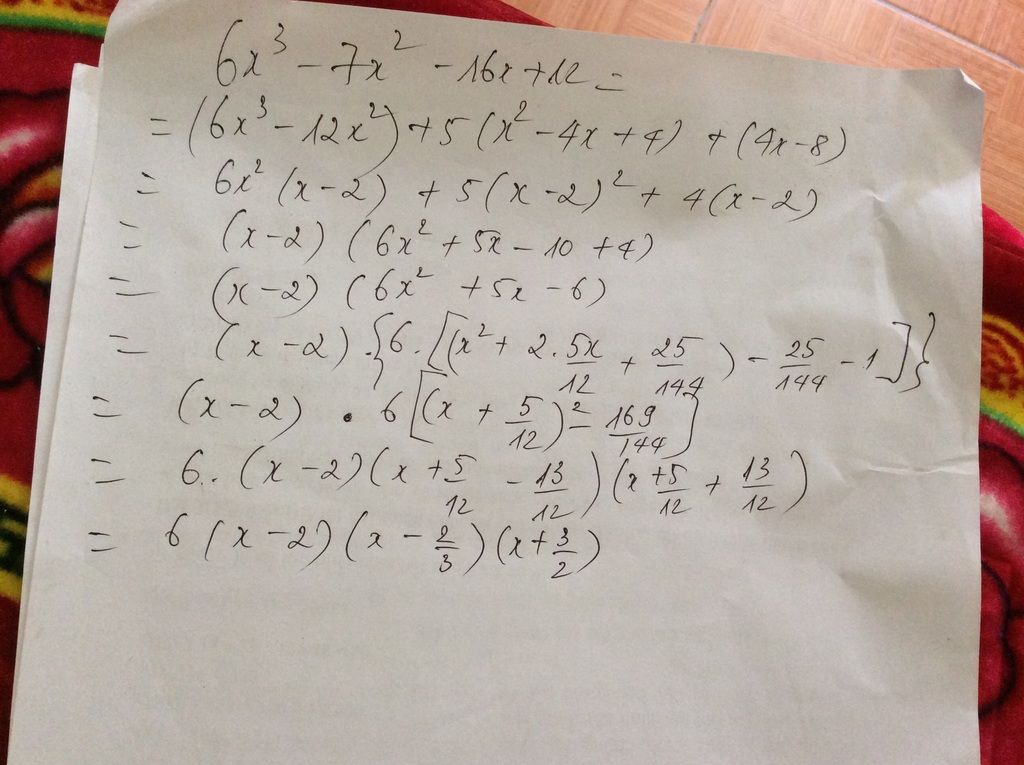 6x³ - 7x² - 16x + 12 =
= (6x³ - 12x²) + 5 (x² - 4x + 4) + (4x - 8)
= 6x² (x - 2) + 5 (x - 2)² + 4 (x - 2)
= (x - 2) (6x² + 5x - 10 + 4)
= (x - 2) (6x² + 5x - 6)
= (x - 2) . {6 . [(x² + 2 . 5x/12 + 25/144) - 25/144 - 1]}
= (x - 2) . 6 [(x + 5/12)² - 169/144]
= 6 . . (x - 2) (x + 5/12 - 13/12) (x + 5/12 + 13/12)
= 6 (x - 2) (x - 2/3) (x + 3/2)